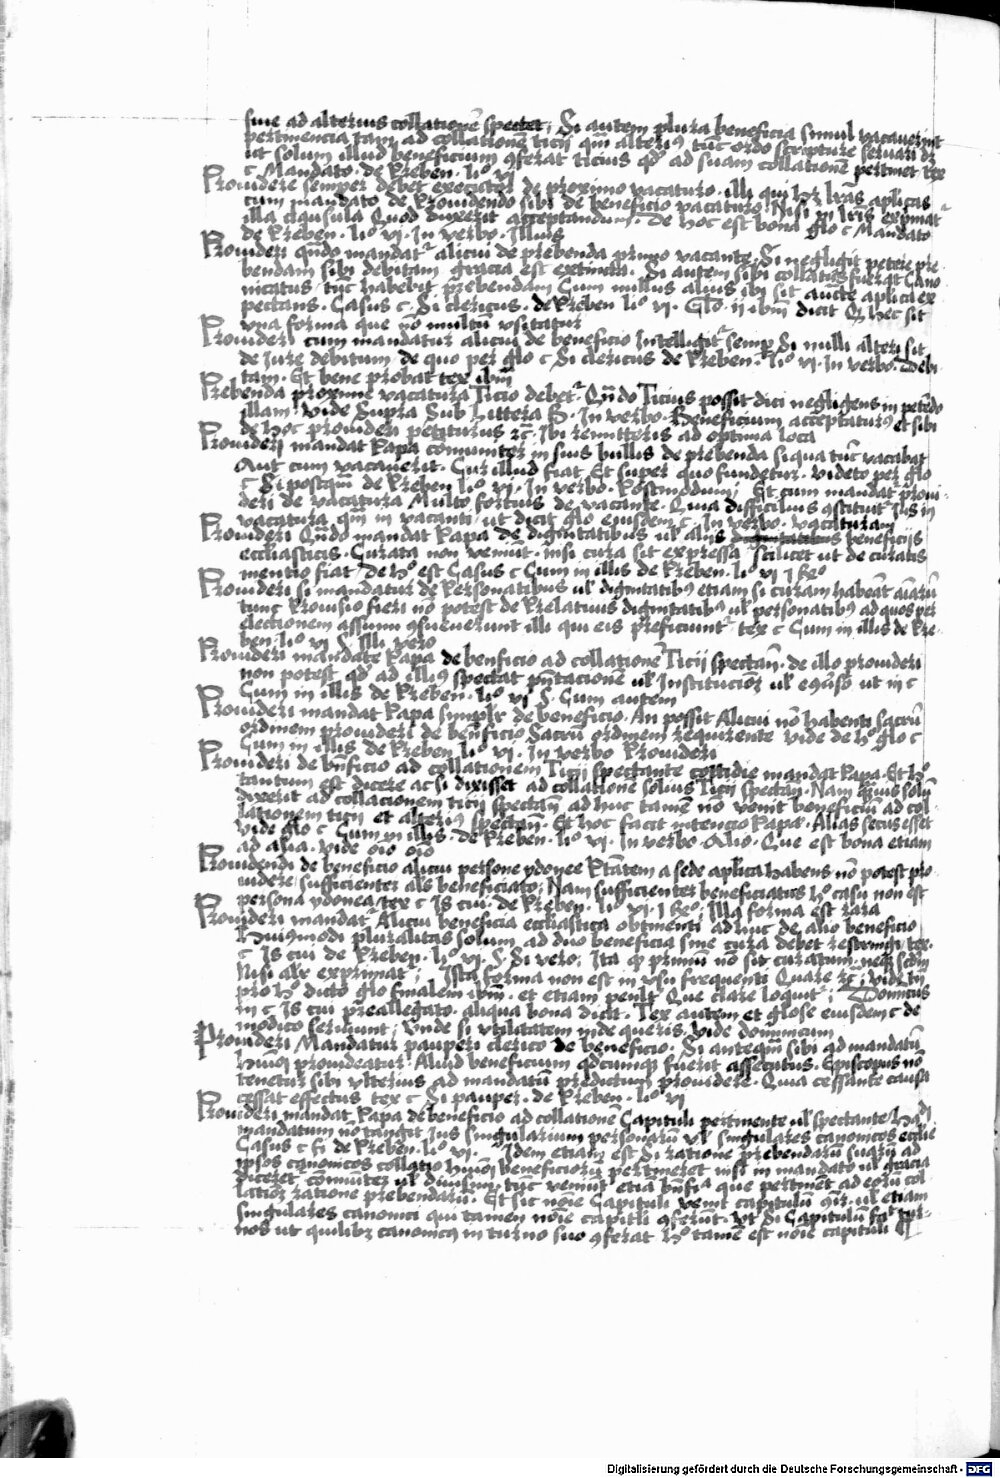 siue ad alterius collationē spectet; Si autem plura beneficia simul vacauerint
pertinencia tam ad collationē ticii qm̄ alteriꝰ tūc ordo scripture seruari dꝫ
ut solum illud beneficium ꝯferat ticius qd̓ ad suam collationē pertinet tex
c Mandato · de Preben · liº vi
Prouidere semper debet executor de proximo vacaturo · illi qui hꝫ lrās aplicas
cum mandato de prouidendo sibi de beneficio vacaturo · Nisi in lrīs exprimatᷣ
illa clausula Quod duxerit acceptandum · De hoc est bona glo c Mandato
de Preben · liº vi · In verbo · Illius
Prouideri qn̄do mandatᷣ alicui de prebenda primo vacante · Si negligit petere pre
bendam sibi debitam gracia est extincta · Si autem sibi collatus fuerat Cano
nicatus tūc habebit prebendam Cum nullus alius ibi sit aucte aplica ex
pectans · Casus c · Si clericus · de Preben liº vi · Glo · ii ibm̄ dicit Qꝫ hec sit
vna forma que nō multū vsitatur
Prouideri cum mandatur alicui de beneficio Intelligitᷣ semp̲ Si nulli alteri sit
de Jure debitum · de quo per glo c Si clericus de Preben · liº vi · In verbo · Debi
tam · Et bene probat tex ibm̄
Prebenda proxime vacatura Ticio debetᷣ · Qn̄do Ticius possit dici negligens in petēdo
illam · vide Supra Sub Littera B · In verbo · Beneficium acceptaturꝰ et sibi
de hoc prouideri petiturus ꝛc̄ · Ibi remitteris ad optima loca
Prouideri mandat Papa communiter in suis bullis de prebenda siqua tūc vacabat
Aut cum vacauerit · Cur illud fiat Et super quo fundetur · videto per glo
c Si postqm̄ de Preben liº vi · In verbo · Postmodum; Et cum mandatᷣ proui
deri de vacatura Multo fortius de vacante · Quia difficilius ꝯstituitᷣ Jus in
vacatura qm̄ in vacanti · ut dicit glo eiusdem c · In verbo · vacaturam
Prouideri Qn̄do mandat Papa de dignitatibus ul̓ aliis beneficiis
ecclīasticis · Curata non veniūt · nisi cura sit expressa Scilicet ut de curatis
mentio fiat De hº est Casus c Cum in illis de Preben · liº vi
Prouideri si mandatur de Personatibus ul̓ dignitatibꝰ etiam si curam habeāt aīarū
tunc Prouisio fieri nō potest de Prelatiuis dignitatibꝰ ul̓ personatibꝰ ad quos per
electionem assumi ꝯsueuerunt illi qui eis preficiuntᷣ tex c Cum in illis de Pre
ben · liº vi § Illi vero
Prouideri mandāte Papa de benficio ad collationē Ticii spectan̄ · de illo prouideri
non potest qd̓ ad illiꝰ spectat pn̄tacionē ul̓ Institucionē ul̓ ut in c
Cum in illis de Preben · liº vi § · Cum autem
Prouideri mandat Papa simplr̄ de beneficio · An possit Alicui nō habenti sacrū
ordinem prouideri de benficio Sacrū ordinem requirente vide de hº glo c
Cum in illis de Preben liº vi · In verbo Prouideri
Prouideri de bn̄ficio ad collationem Ticii spectante cottidie mandat Papa · Et hº
tantum est dicere ac si dixisset ad collationē solius Ticii spectan̄ · Nam qm̄uis solū
dixerit ad collacionem ticii spectan̄ ad huc tamē nō venit beneficiū ad col
lationem ticii et alteriꝰ spectan̄ · Et hoc facit intencio Pape · Alias secus esset
vide glo c Cum in illis · De Preben · liº vi · In verbo · Alio · Que est bona etiam
ad alia · vide oīo oīo
Prouidendi de beneficio alicui persone ydonee Ptātem a sede aplica habens nō potest pro
uidere sufficienter al̓s beneficiato; Nam sufficienter beneficiatus hº casu non est
persona ydonea tex c Is cui de Preben · liº vi · Illa forma est rara
Prouideri mandatᷣ Alicui beneficia ecclīastica obtinenti ad huc de alio beneficio
Huiꝰmodi pluralitas solum ad duo beneficia sine cura debet restringi tex ·
c Is cui de Preben · liº vi · § · Si vero; Ita qꝫ primū nō sit curatum · neqꝫ scd̓m
Nisi alr̄ exprimatᷣ; Ista forma non est in vsu frequenti Quare ꝛc̄; vide tn̄
pro hº dicto glo finalem ibm̄ · et etiam penl̓t Que clare loquitᷣ; Dominicus
in c Is cui preallegato · aliqua bona dicit · Tex autem et glose eiusdem c de
modico seruiunt; Vnde si vtilitatem inde queris · vide dominicum
Prouideri Mandatur pauperi clerico de beneficio · Si anteqm̄ sibi ad mandatū
hmōi prouideatur · Aliud beneficium qd̓cunqꝫ fuerit assecutus · Episcopus nō
tenetur sibi vlterius ad mandatū predictum prouidere · Quia cessante causa
cessat effectus tex c Si pauper · de Preben · liº vi
Prouideri mandat Papa de beneficio ad collationē Capituli pertinente ul̓ spectante
mandatum nō tangit Jus singularium personarū vl̓ singulares canonicos ecclīe
Casus c fi de Preben · liº vi · Idem etiam est Si ratione prebendarū suarū ad
ipsos canonicos collatio hmōi beneficiorū pertineret nisi in mandato ul̓ gracia
diceret · cōmuniter ul̓ diuisim · tūc veniūt etiā bn̄ficia que pertinēt ad eorū col
lationē ratione prebendarū · Et sic noīe Capituli venit capitulū ul̓ etiam
singulares canonici qui tamen noīe capitli ꝯferūt · vt Si Capitulū fac̄ tur-
nos ut quilibꝫ canonicꝰ in turno suo ꝯferat hº tamē est noīe capituli
Digitalisierung gefördert durch die Deutsche Forschungsgemeinschaft - DFG